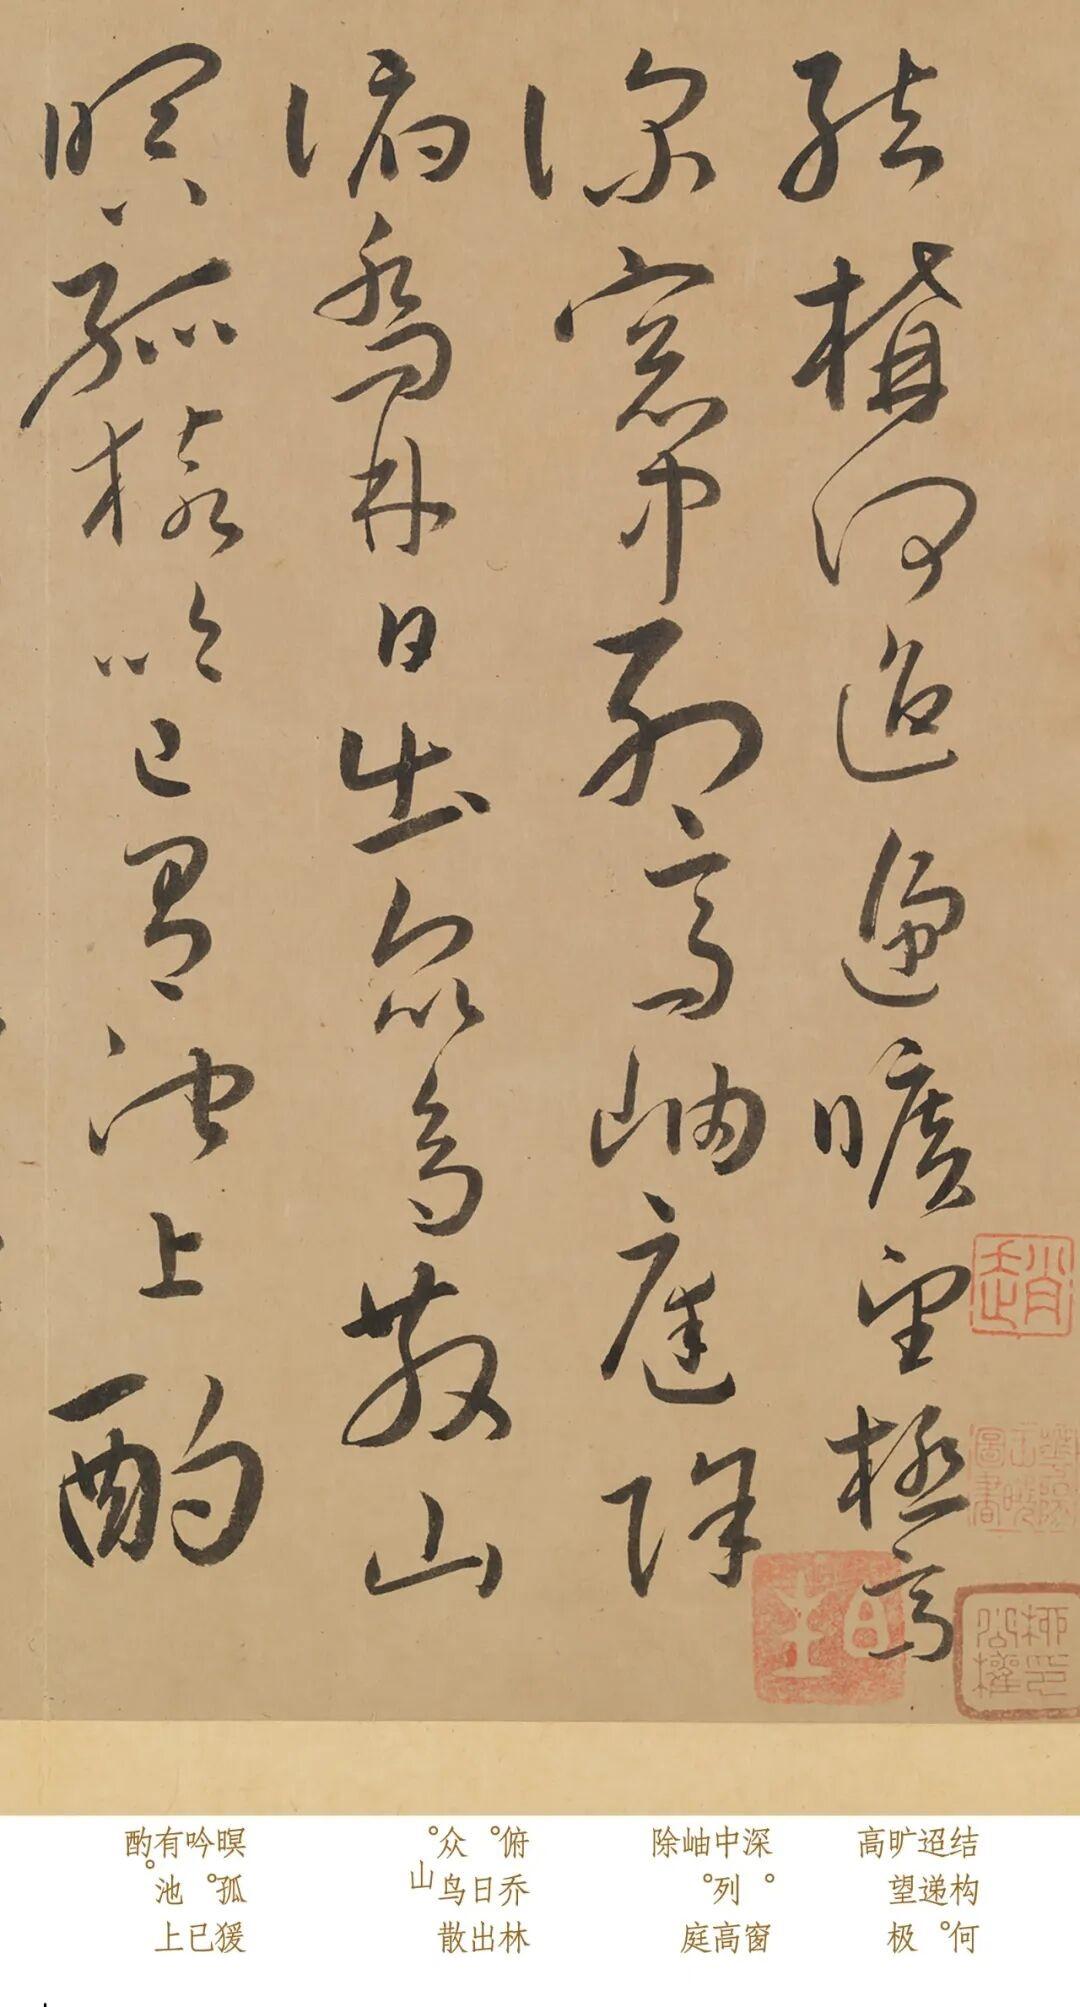 結構何迢遰曠望極高
深窗中列高岫庭除
俯喬林日出衆鳥散山
暝孤猿吟已有池上酌
趙
结构何
迢递。
旷望极
高
深。窗
中列高
岫。庭
除
俯乔林
。日出
众鸟散
。山
暝孤猿
吟。已
有池上
酌。